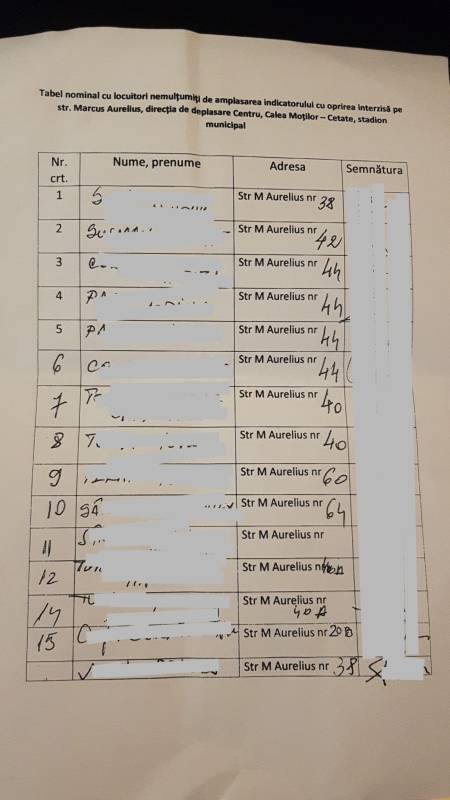 Tabel nominal cu locuitori nemulțumiți de amplasarea indicatorului cu oprirea interzisă pe
str. Marcus Aurelius, direcția de deplasare Centru, Calea Moților – Cetate, stadion
municipal
Nr. crt. Nume, prenume Adresa Semnătura
1 Str M Aurelius nr 38
2 Str M Aurelius nr 42
3 Str M Aurelius nr 44
4 Str M Aurelius nr 44
5 Str M Aurelius nr 44
6 Str M Aurelius nr 44
7 Str M Aurelius nr 40
8 Str M Aurelius nr 40
9 Str M Aurelius nr 60
10 Str M Aurelius nr 64
11 Str M Aurelius nr
12 Str M Aurelius nr
14 Str M Aurelius nr
40 A
15 Str M Aurelius nr 20 B
Str M Aurelius nr 38